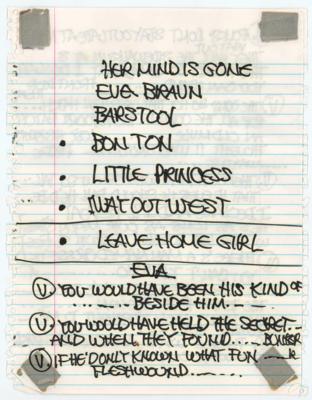 HER MIND IS GONE
EVA BRAUN
BARSTOOL
• BON TON
• LITTLE PRINCESS
• WAY OUT WEST
• LEAVE HOME GIRL
EVA
V YOU WOULD HAVE BEEN HIS KIND OF
BESIDE HIM
V YOU WOULD HAVE HELD THE SECRET
AND WHEN THEY FOUND BUNKER
V IF HE'D ONLY KNOWN WHAT FUN
FLESHWOUND